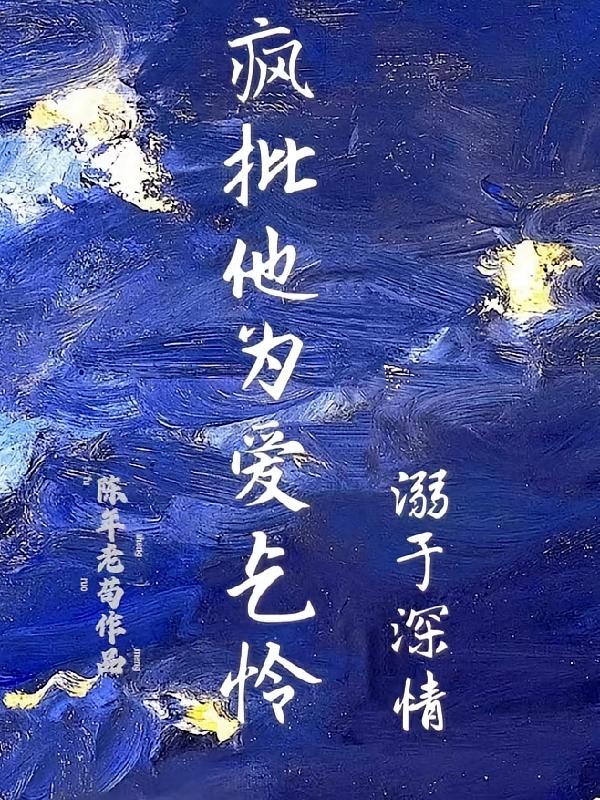 疯批他为爱乞怜
溺于深情
陈年老苟作品